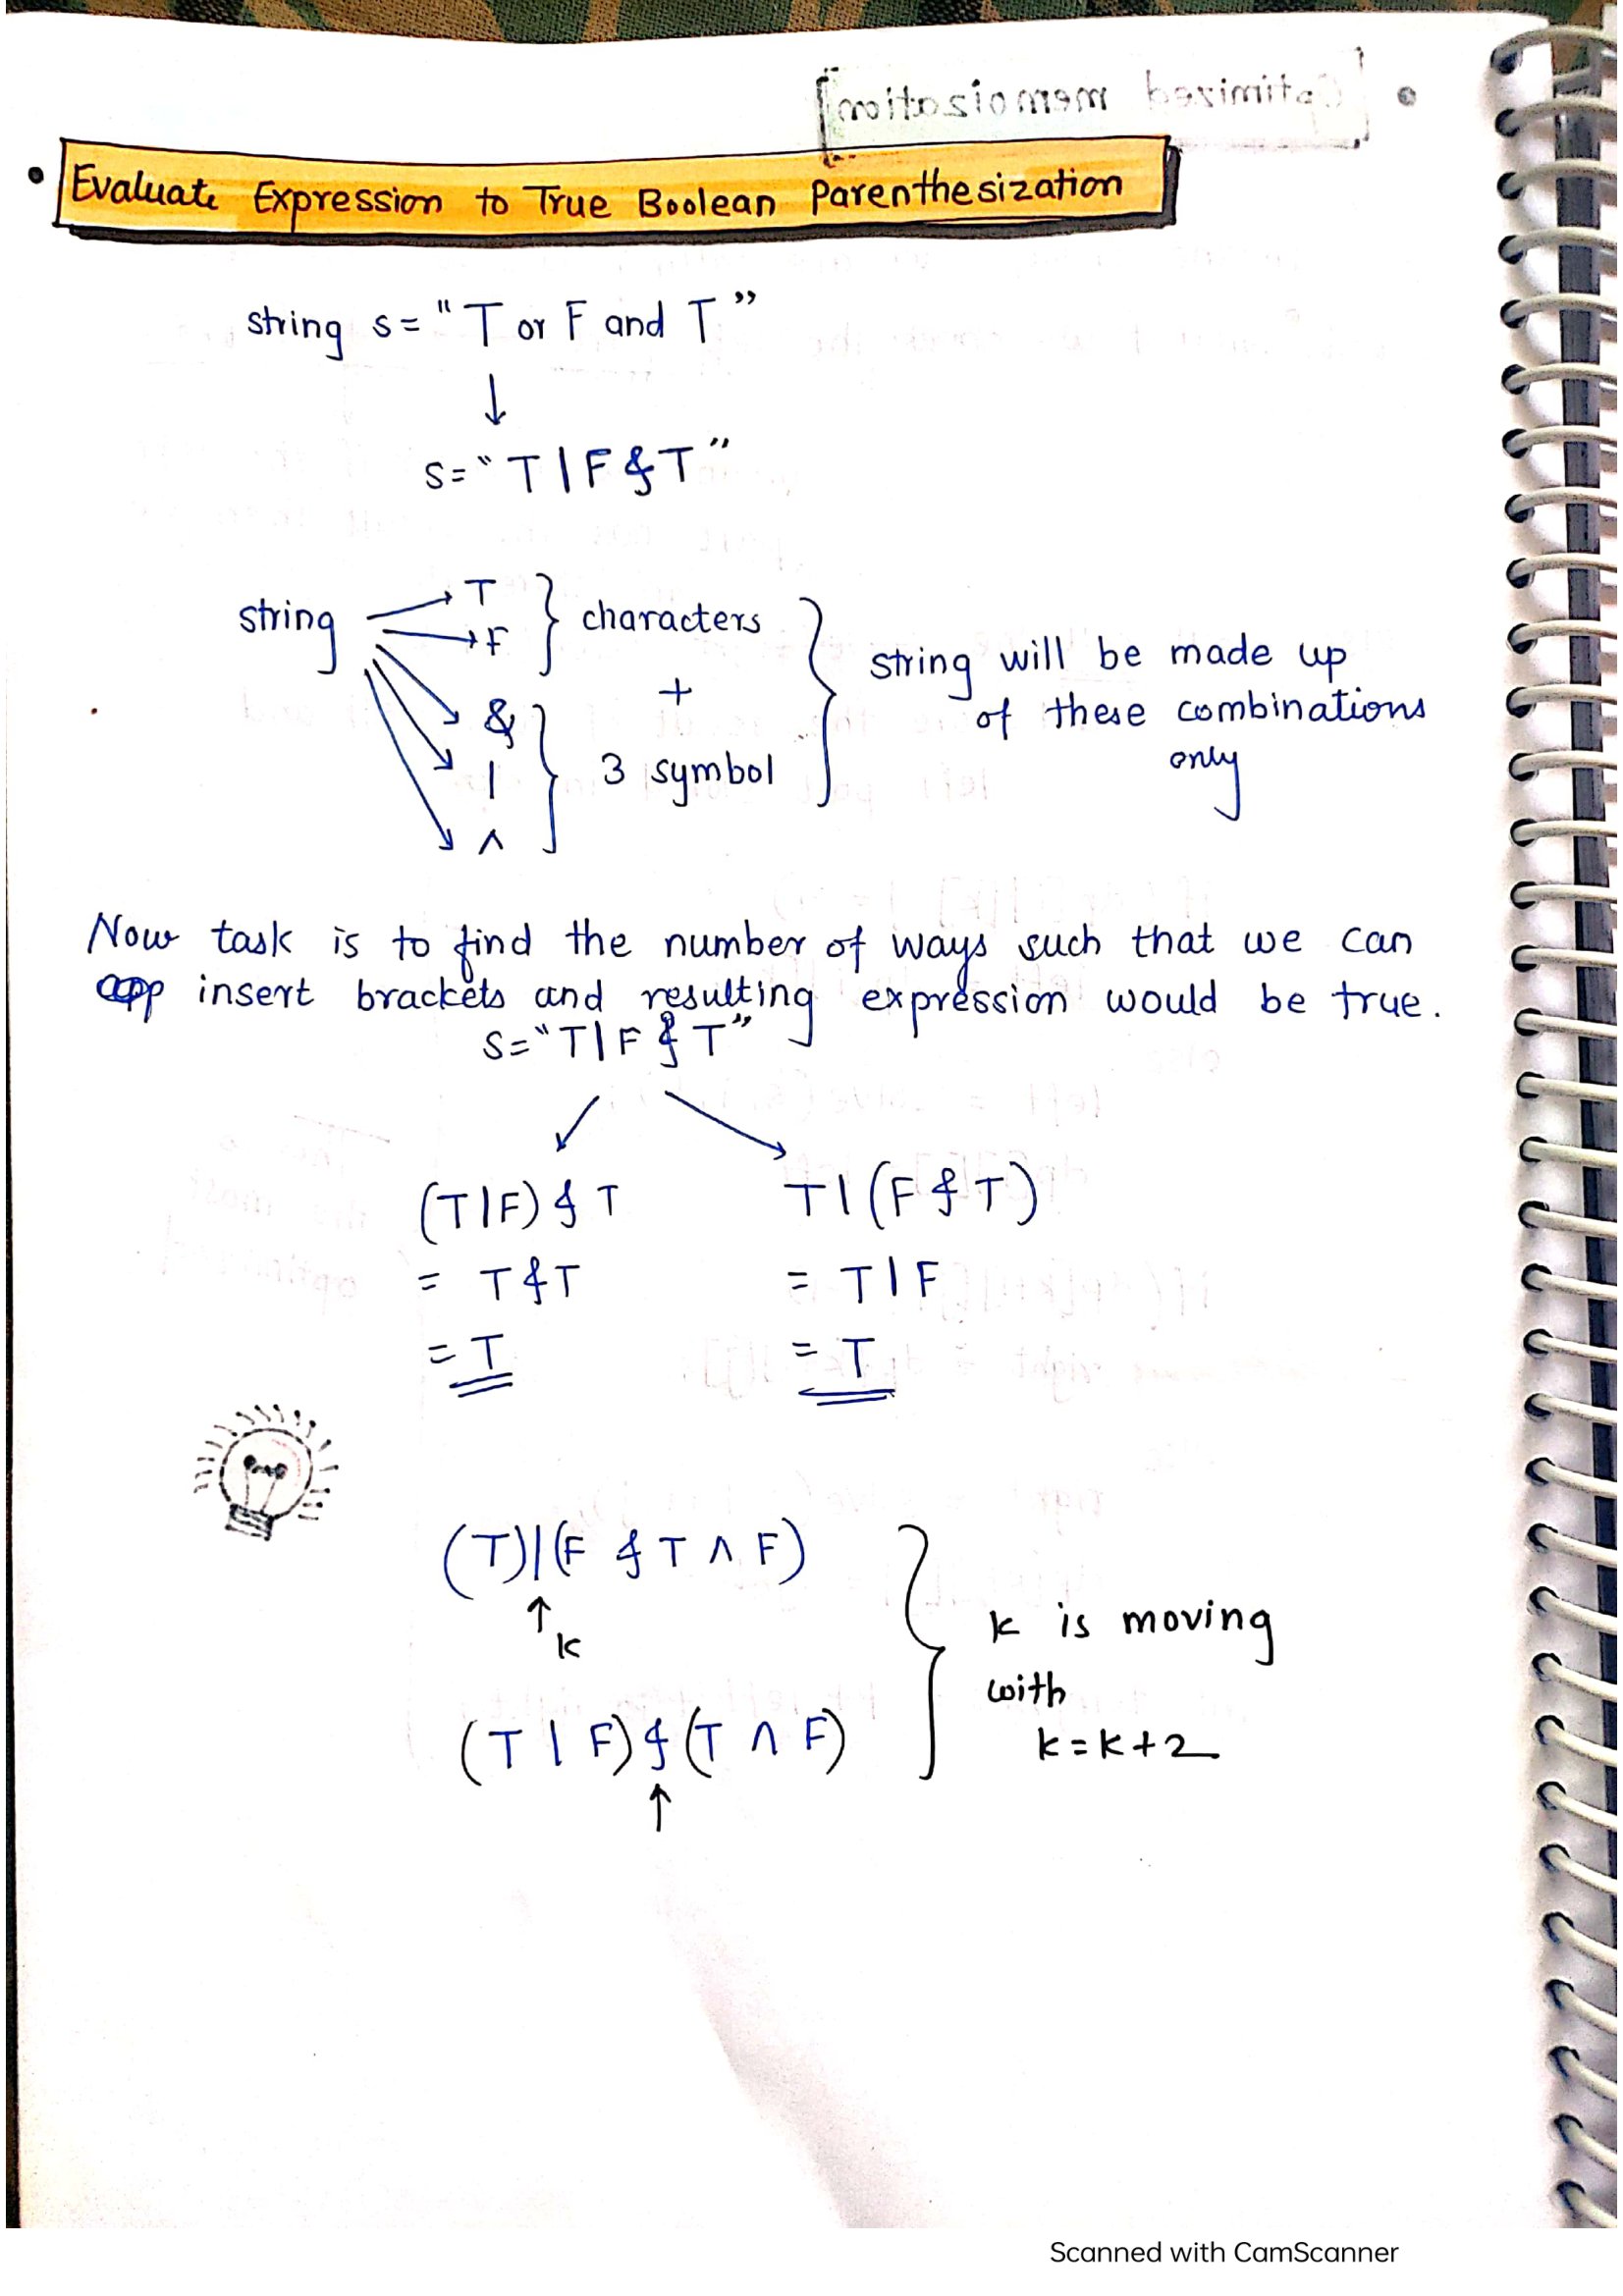 • Evaluate Expression to True Boolean Parenthesization
string s = "T or F and T"
↓
s = "T | F & T"
string
T
F
} characters
+
&
|
^
} 3 symbol
string will be made up
of these combinations
only
Now task is to find the number of ways such that we can
insert brackets and resulting expression would be true.
s = "T | F & T"
(T|F) & T
T | (F & T)
= T & T
= T | F
= T
= T
(T)|(F & T ^ F)
↑ k
(T | F) & (T ^ F)
↑
k is moving
with
k = k + 2
Scanned with CamScanner